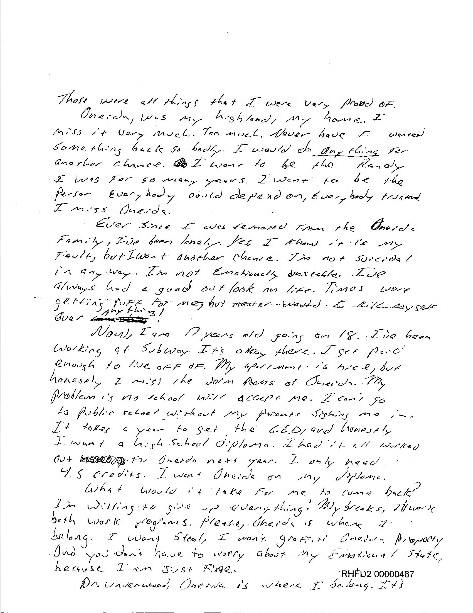 Those were all things that I were very proud of.
Oneida, was my highland, my home. I
miss it very much. Too much. Never have I wanted
something back so badly. I would do anything for
another chance. I want to be the Randy
I was for so many years. I want to be the
person everybody could depend on, everybody trusted
I miss Oneida.
Ever since I was removed from the Oneida
Family, I've been lonely. Yes I know it is my
fault, but I want another chance. I'm not suicidal
in any way. I'm not emotionally unstable. I've
always had a good outlook on life. Times were
getting tuff for me, but never would I kill myself
over anything!
Now, I am 17 years old going on 18. I've been
working at Subway. It's okay there. I get paid
enough to live off of. My apartment is nice, but
honestly I miss the dorm rooms at Oneida. My
problem is no school will accept me. I can't go
to public school without my parents signing me in.
It takes a year to get the G.E.D, and honestly
I want a high school diploma. I had it all worked
out for Oneida next year. I only need
4.5 credits. I want Oneida on my diploma.
What would it take for me to come back?
I'm willing to give up everything. My breaks, I'll work
both work programs. Please, Oneida is where I
belong. I won't steal, I won't Oneida property
And you don't have to worry about my emotional state,
because I am just fine.
Dr. Underwood, Oneida is where I belong. It's
RHFD2 00000467